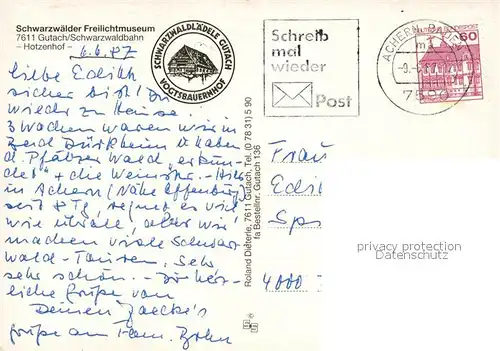 Schwarzwälder Freilichtmuseum
7611 Gutach/Schwarzwaldbahn
– Hotzenhof –
6.6.87
SCHWARZWALDLÄDELE GUTACH
VOGTSBAUERNHOF
Schreib
mal
wieder
Post
ACHERN, BADEN
7590
60
Liebe Edith
sicher bist Du
wieder zu Hause.
3 Wochen waren wir in
Bad Dürkheim u. haben
d. Pfälzer Wald „erkun-
det" + die Weinstr. – Hier
in Achern (Nähe Offenburg)
seit 8 Tg, regnet es viel
wie überall, aber wir
machen viele Schwarz-
wald-Touren. Sehr
sehr schön. – Dir herz-
liche Grüße von
Deinen
Grüße an Fam.
Roland Dieterle, 7611 Gutach, Tel. (0 78 31) 5 90
fa Bestellnr. Gutach 136
Frau
Edi
4000
privacy protection
Datenschutz